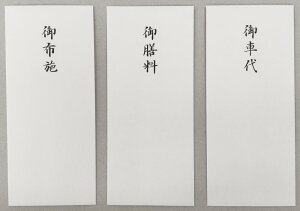 御布施
御膳料
御車代